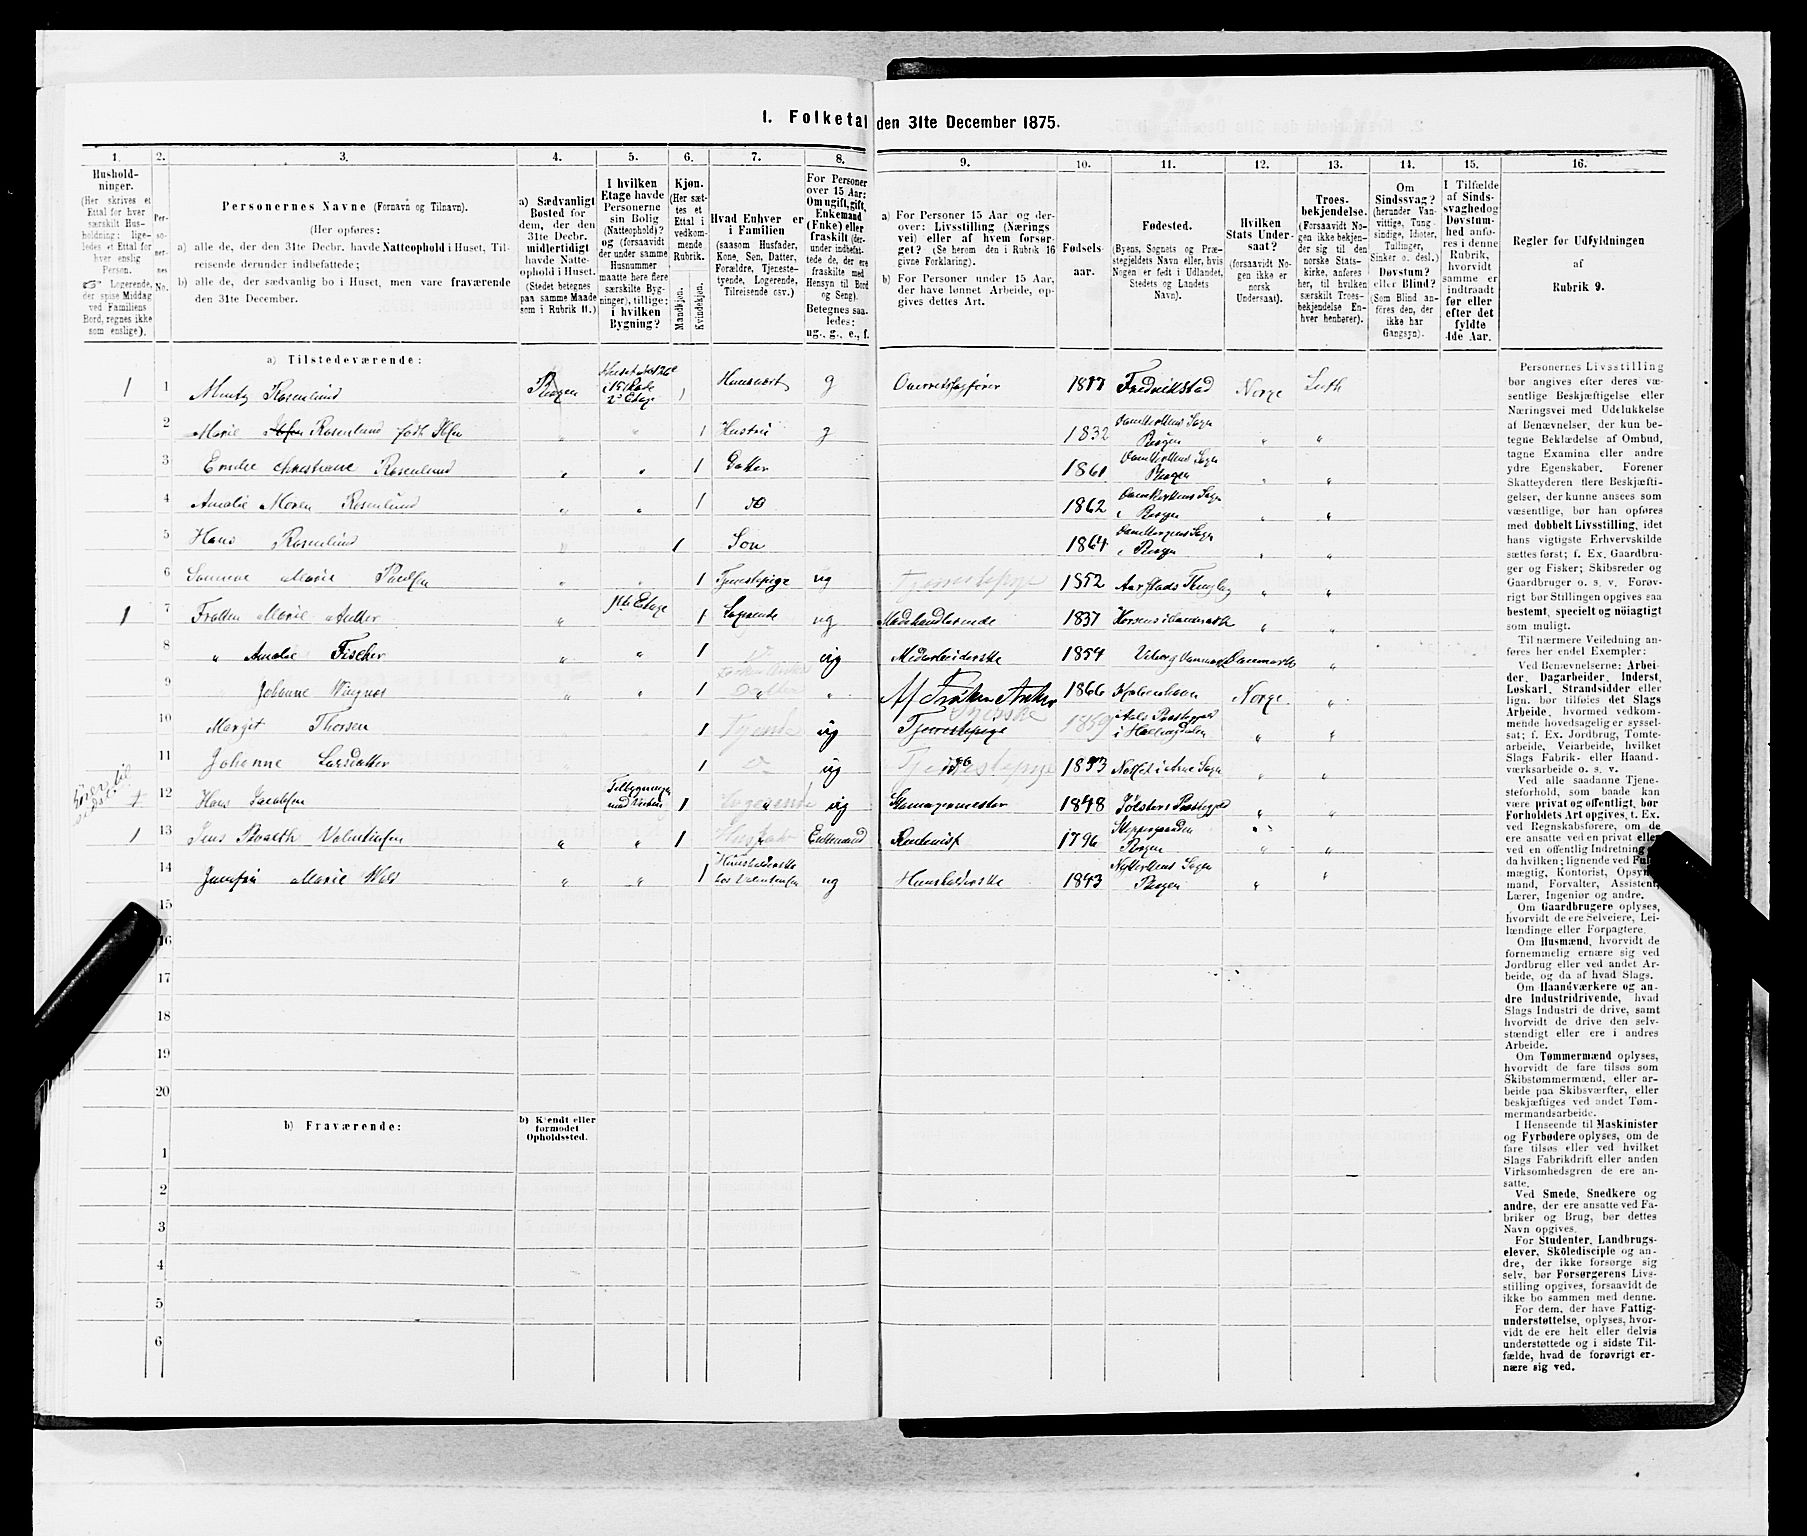 1. Folketal den 31te December 1875.
1. 2. 3. 4. 5. 6. 7. 8. 9. 10. 11. 12. 13. 14. 15. 16.
Hushold-
ninger.
(Her skrives et
Ettal for hver
særskilt Hus-
holdning; lige-
ledes et Ettal for
hver enslig
Person.
Logerende,
der spise Middag
ved Familiens
Bord, regnes ikke
som enslige).
Per-
so-
ner-
nes
No.
Personernes Navne (Fornavn og Tilnavn).
(Her opføres:
a) alle de, der den 31te Decbr. havde Natteophold i Huset, Til-
reisende derunder indbefattede;
b) alle de, der sædvanlig bo i Huset, men vare fraværende
den 31te December.
a) Sædvanligt
Bosted for
dem, der den
31te Decbr.
midlertidigt
havde Natte-
ophold i Huset.
(Stedet betegnes
paa samme Maade
som i Rubrik 11.)
I hvilken
Etage havde
Personerne
sin Bolig
(Natteophold)?
og (forsaavidt
der under samme
Husnummer
maatte høre flere
særskilte Byg-
ninger), tillige:
i hvilken
Bygning?
Kjøn.
(Her sæt-
tes et
Ettal i
vedkom-
mende
Rubrik.
Mandkjøn.
Kvindekjøn.
Hvad Enhver er
i Familien
(saasom Husfader,
Kone, Søn, Datter,
Forældre, Tjeneste-
tyende, Logerende,
Tilreisende osv.)
For Personer
over 15 Aar:
Om ugift, gift,
Enkemand
(Enke) eller
fraskilt (der-
under indbefat-
tede de, der ere
fraskilte med
Hensyn til Bord
og Seng).
Betegnes saa-
ledes:
ug., g., e., f.
a) For Personer 15 Aar og der-
over: Livsstilling (Nærings-
vei) eller af hvem forsør-
get? (Se herom den i Rubrik 16
givne Forklaring).
b) For Personer under 15 Aar,
der have lønnet Arbeide, op-
gives dettes Art.
Fødsels-
aar.
Fødested.
(Byens, Sognets og Præ-
stegjeldets Navn, eller hvis
Nogen er født i Udlandet,
Stedets og Landets
Navn).
Hvilken
Stats Under-
saat?
(forsaavidt No-
gen ikke er
norsk
Undersaat).
Troes-
bekjendelse.
(Forsaavidt No-
gen ikke bekjen-
der sig til den
norske Stats-
kirke, anføres
her, til hvilken
særskilt Troes-
bekjendelse En-
hver henhører).
Om
Sindssvag?
(herunder Van-
vittige, Tung-
sindige, Idioter,
Tullinger,
Sinker o. desl.)
Døvstum?
eller Blind?
(Som Blind an-
føres den, der
ikke har
Gangsyn).
I Tilfælde
af Sinds-
svaghed og
Døvstum-
hed anfø-
res i denne
Rubrik,
hvorvidt
samme er
indtraadt
før eller
efter det
fyldte
4de Aar.
Regler for Udfyldningen
af
Rubrik 9.
a) Tilstedeværende:
1 1 Rosenlund Bergen 2den Etage 1 g Overretssagfører Fredrikstad Norge Luth
2 Marie Rosenlund født Ibsen " " 1 Hustru g 1832 Domkirkens Sogn Bergen " "
3 Emilie Christiane Rosenlund " " 1 Datter 1861 Domkirkens Sogn Bergen " "
4 Amalie Rosenlund " " 1 do 1862 Domkirkens Sogn i Bergen " "
5 Hans Rosenlund " 1 Søn 1864 Sogn i Bergen " "
6 Marie " " 1 Tjenestepige ug Tjenestepige 1852 Aarstads " "
1 7 Frøken Marie Anker " 1ste Etage 1 Logerende ug Modehandlerinde 1837 Horsens i Danmark " "
8 " Amalie Fischer " " 1 ug Medarbeiderske 1854 Viborg Danmark Danmark "
9 Johanne " " 1 " Af Frøken Anker 1866 Kjøbenhavn Norge "
10 Margit Thorsen 1 Tjenestepige 1859 Aals Præstegjeld i Hallingdalen " "
11 Johanne Larsdatter 1 ug Tjenestepige Sogn " "
12 Hans Jacobsen 1 Logerende ug 1848 Jølsters Præstegjeld " "
1 13 Jens Valentinsen " " 1 Enkemand Rentenist 1796 Bergen " "
14 Jomfru Marie " " 1 Huusholderske hos Valentinsen ug Huusholderske 1843 Sogn Bergen " "
15
16
17
18
19
20
b) Fraværende:
b) Kjendt eller
formodet
Opholdssted.
1
2
3
4
5
6
Personernes Livsstilling
bør angives efter deres væ-
sentlige Beskjæftigelse eller
Næringsvei med Udelukkelse
af Benævnelser, der kun be-
tegne Beklædelse af Ombud,
tagne Examina eller andre
ydre Egenskaber. Forener
Skatteyderen flere Beskjæfti-
gelser, der kunne ansees som
væsentlige, bør han opføres
med dobbelt Livsstilling, idet
hans vigtigste Erhvervskilde
sættes først; f. Ex. Gaardbru-
ger og Fisker; Skibsreder og
Gaardbruger o. s. v. Forøv-
rigt bør Stillingen opgives saa
bestemt, specielt og nøiagtigt
som muligt.
Til nærmere Veiledning an-
føres her endel Exempler:
Ved Benævnelserne: Arbei-
der, Dagarbeider, Inderst,
Løskarl, Strandsidder eller
lign. bør tilføies det Slags
Arbeide, hvormed vedkom-
mende hovedsagelig er syssel-
sat; f. Ex. Jordbrug, Tømte-
arbeide, Veiarbeide, hvilket
Slags Fabrik- eller Haand-
værksarbeide o. s. v.
Ved alle saadanne Tjene-
steforhold, som baade kan
være privat og offentligt, bør
Forholdets Art opgives, t. Ex.
ved Regnskabsførere, om de
ere ansatte ved en privat eller
ved en offentlig Indretning og
da hvilken; lignende ved Fuld-
mægtig, Kontorist, Opsyns-
mand, Forvalter, Assistent,
Lærer, Ingeniør og andre.
Om Gaardbrugere oplyses,
hvorvidt de ere Selveiere, Lei-
lændinge eller Forpagtere.
Om Husmænd, hvorvidt de
fornemmelig ernære sig ved
Jordbrug eller ved andet Ar-
beide, og da af hvad Slags.
Om Haandværkere og an-
dre Industridrivende, hvad
Slags Industri de drive, samt
hvorvidt de drive den selv-
stændigt eller ere i andres
Arbeide.
Om Tømmermænd oplyses,
hvorvidt de fare tilsøs som
Skibstømmermænd, eller ar-
beide paa Skibsværfter, eller
beskjæftiges ved andet Tøm-
mermandsarbeide.
I Henseende til Maskinister
og Fyrbødere oplyses, om de
fare tilsøs eller ved hvilket
Slags Fabrikdrift eller anden
Virksomhedsgren de ere an-
satte.
Ved Smede, Snedkere og
andre, der ere ansatte ved Fa-
briker og Brug, bør dettes
Navn opgives.
For Studenter, Landbrugs-
elever, Skoledisciple og an-
dre, der ikke forsørge sig
selv, bør Forsørgerens Livs-
stilling opgives, forsaavidt de
ikke bo sammen med denne.
For dem, der have Fattig-
understøttelse, oplyses, hvor-
vidt de ere helt eller delvis
understøttede og i sidste Til-
fælde, hvad de forøvrigt er-
nære sig ved.